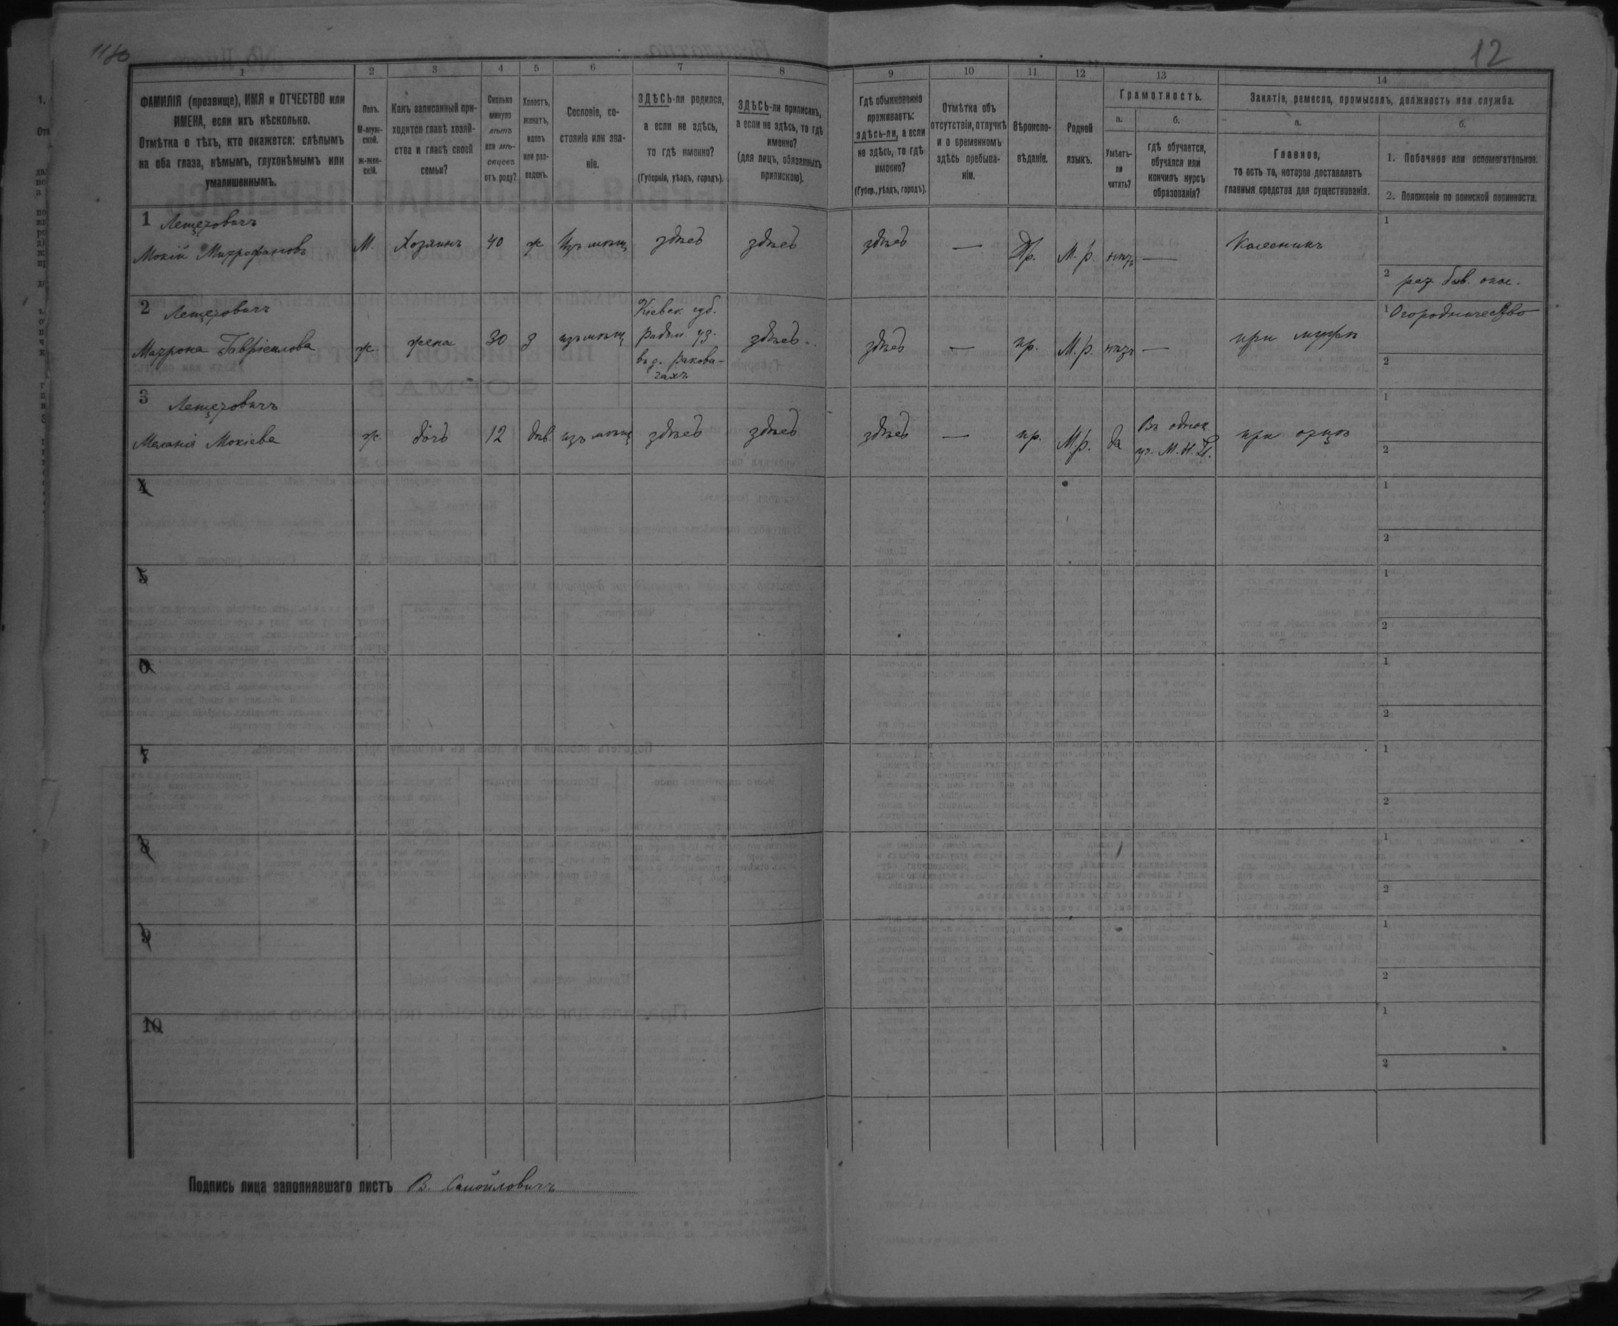 12
1 2 3 4 5 6 7 8 9 10 11 12 13 14
ФАМИЛІЯ (прозвище), ИМЯ и ОТЧЕСТВО или
ИМЕНА, если ихъ нѣсколько.
Отмѣтка о тѣхъ, кто окажется: слѣпымъ
на оба глаза, нѣмымъ, глухонѣмымъ или
умалишеннымъ.
Полъ.
М-муж-
ской.
ж-жен-
скій.
Какъ записанный при-
ходится главѣ хозяй-
ства и главѣ своей
семьи?
Сколько
минуло
лѣтъ
или мѣ-
сяцевъ
отъ роду?
Холостъ,
женатъ,
вдовъ
или раз-
веденъ.
Сословіе, со-
стояніе или зва-
ніе.
ЗДѢСЬ-ли родился,
а если не здѣсь,
то гдѣ именно?
(Губернія, уѣздъ, городъ).
ЗДѢСЬ-ли приписанъ,
а если не здѣсь, то гдѣ
именно?
(для лицъ, обязанныхъ
припискою).
Гдѣ обыкновенно
проживаетъ:
здѣсь-ли, а если
не здѣсь, то гдѣ
именно?
(Губер., уѣздъ, городъ).
Отмѣтка объ
отсутствіи, отлучкѣ
и о временномъ
здѣсь пребыва-
ніи.
Вѣроиспо-
вѣданіе.
Родной
языкъ.
Грамотность.
а.
Умѣетъ-
ли
читать?
б.
гдѣ обучается,
обучался или
кончилъ курсъ
образованія?
Занятіе, ремесло, промыселъ, должность или служба.
а.
Главное,
то есть то, которое доставляетъ
главныя средства для существованія.
б.
1. Побочное или вспомогательное.
2. Положеніе по воинской повинности.
1 Лещеровичъ
Мокій Митрофановъ М. Хозяинъ 40 ж Изъ мѣщ здѣсь здѣсь здѣсь — Пр. М.р. нѣтъ — Колесникъ
1
2
2 Лещеровичъ
Матрона Гавріилова ж жена 30 З изъ мѣщ
Кіевск. губ.
Радом. уз.
здѣсь здѣсь — пр. М.р. нѣтъ — при мужѣ
1 Огородничество
2
3 Лещеровичъ
Меланія Мокіева ж. дочь 12 дѣв изъ мѣщ здѣсь здѣсь здѣсь — пр. М.р. да
уч. М.Н.П.
при отцѣ
1
2
4 1
2
5 1
2
6 1
2
7 1
2
8 1
2
9 1
2
10 1
2
Подпись лица заполнявшаго листъ В. Самойловичъ